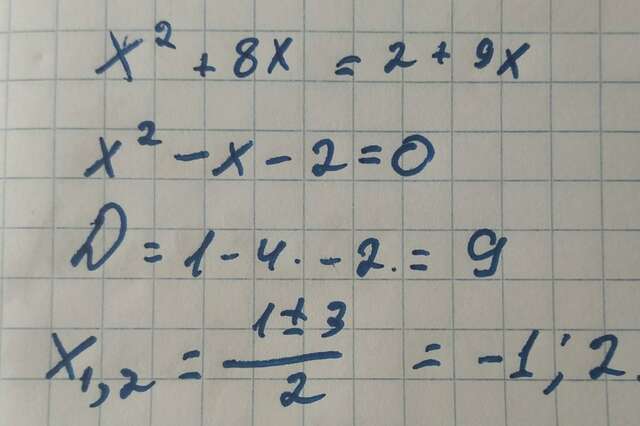 x² + 8x = 2 + 9x
x² - x - 2 = 0
D = 1 - 4 · - 2. = 9
x₁,₂ = (1 ± 3)/2 = -1; 2.